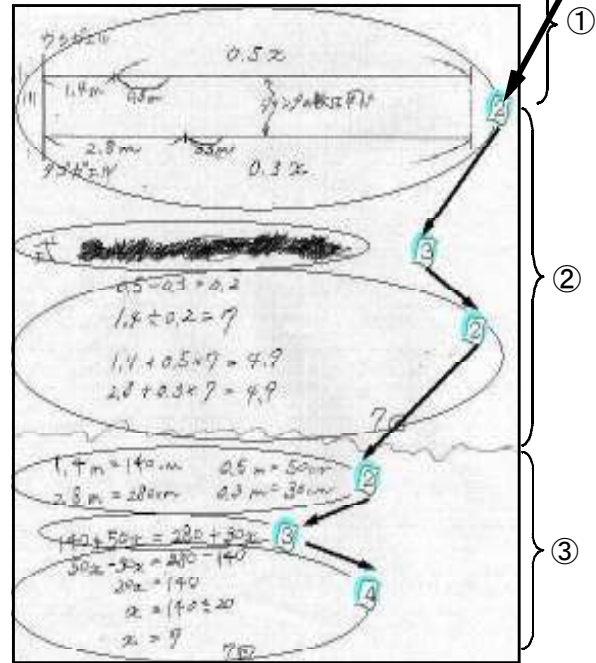 ①
ウシガエル
0.5x
1.4m 0.5m
ジャンプの数は同じ
2
2.8m 0.3m
0.3x
3
式
②
0.5-0.3=0.2
2
1.4÷0.2=7
1.4+0.5×7=4.9
2.8+0.3×7=4.9
7回
1.4m=140cm 0.5m=50cm
2
2.8m=280cm 0.3m=30cm
140+50x=280+30x
3
③
50x-30x=280-140
20x=140
4
x=140÷20
x=7
7回